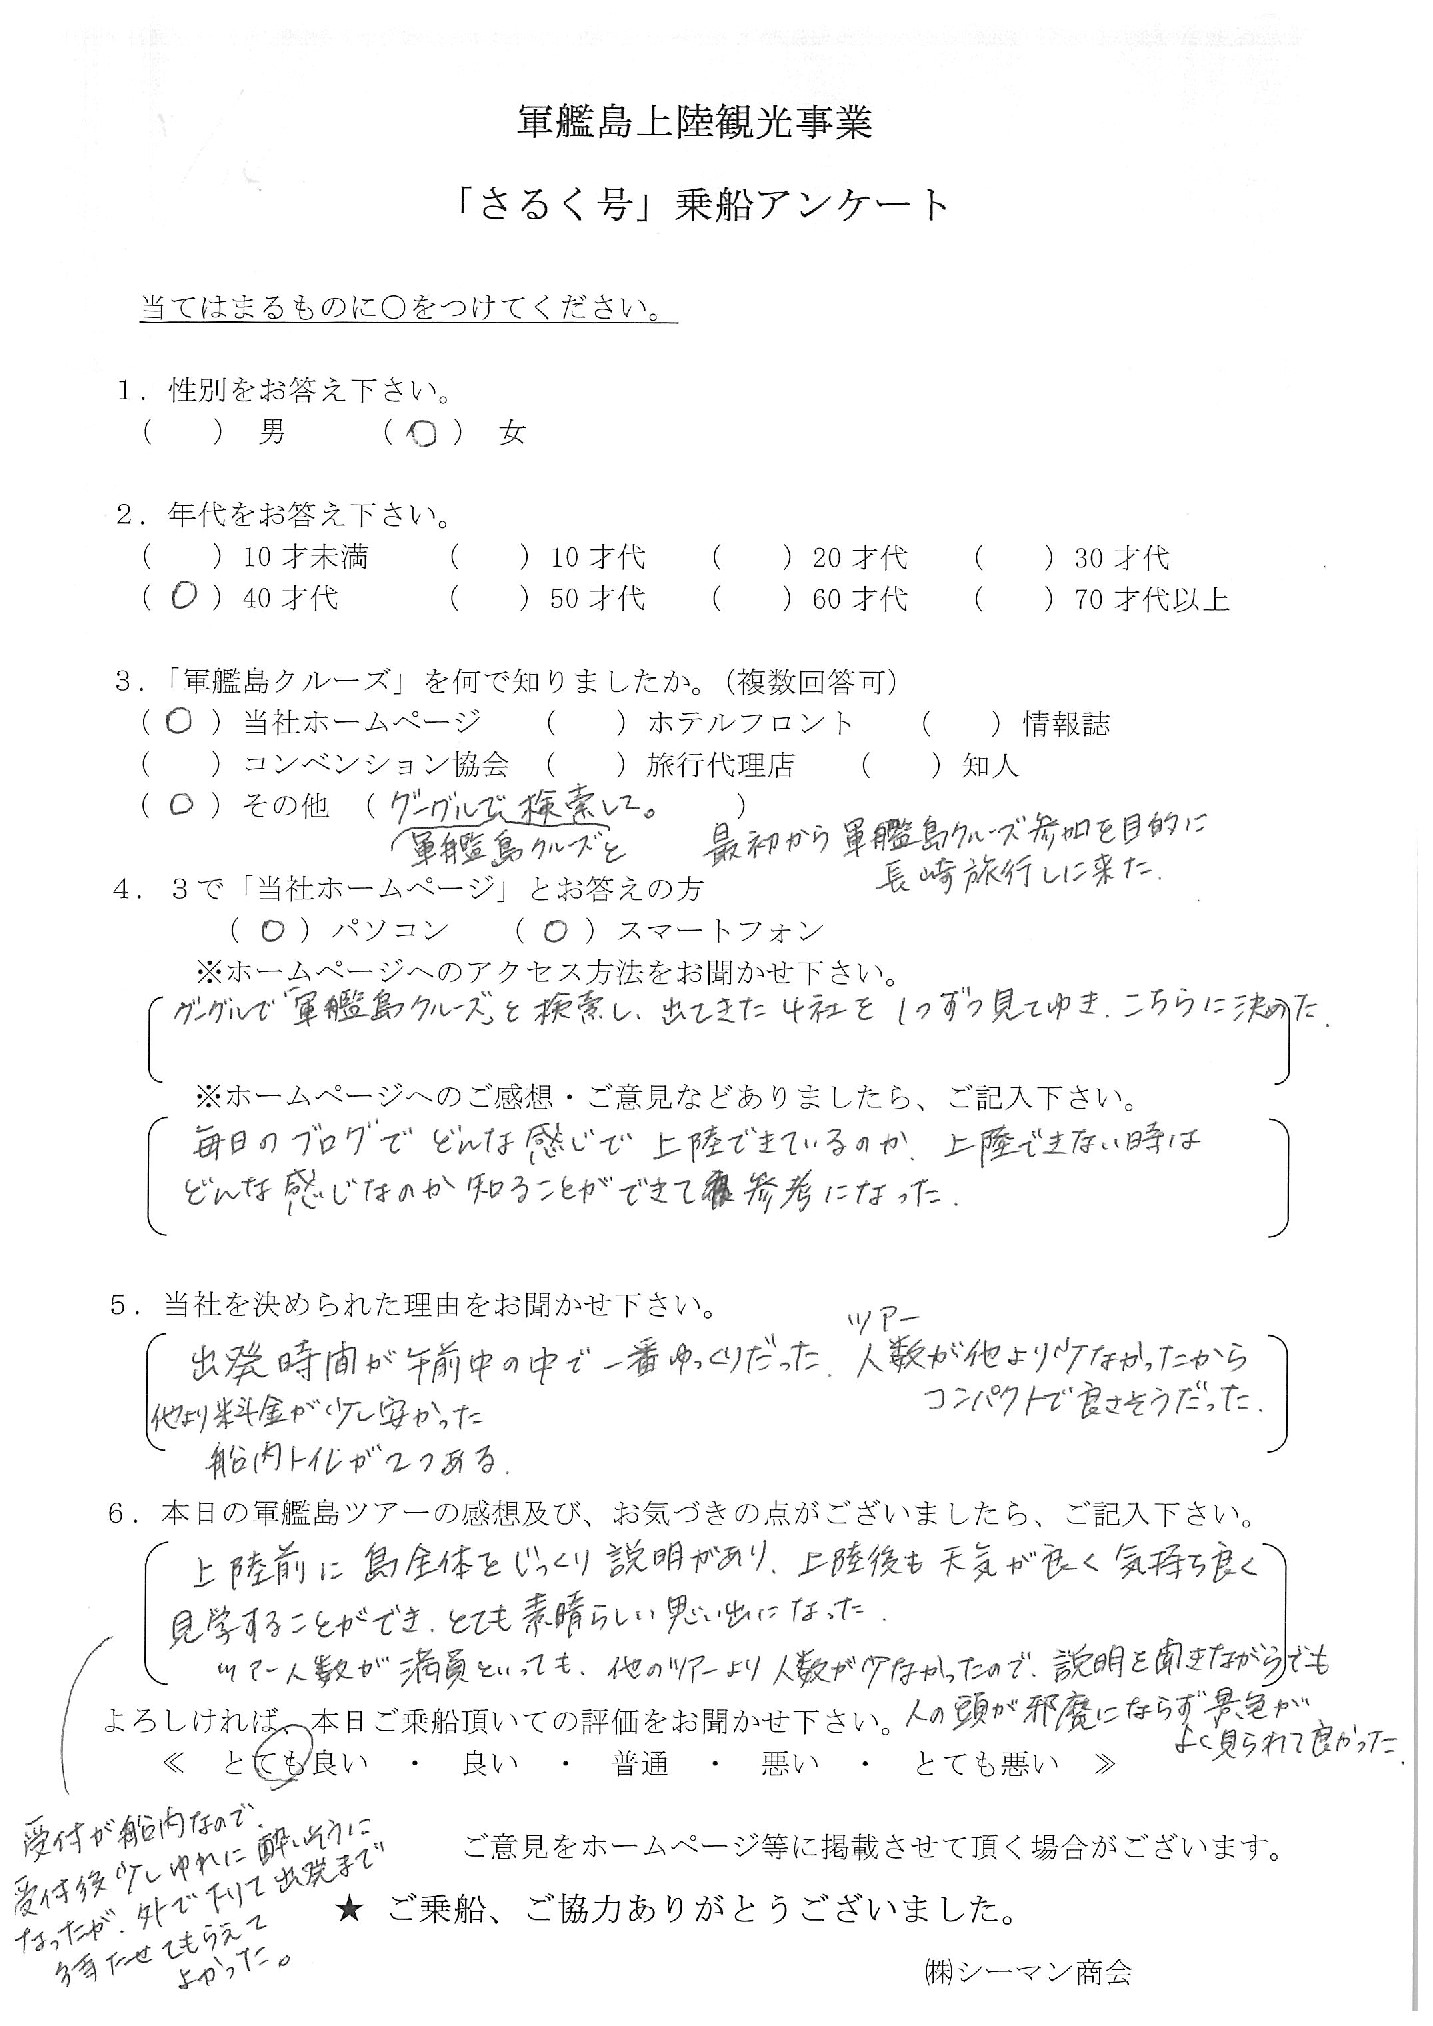 軍艦島上陸観光事業
「さるく号」乗船アンケート
当てはまるものに〇をつけてください。
１．性別をお答え下さい。
（　　）男　　（ 〇 ）女
２．年代をお答え下さい。
（　　）10 才未満　（　　）10 才代　（　　）20 才代　（　　）30 才代
（ 〇 ）40 才代　（　　）50 才代　（　　）60 才代　（　　）70 才代以上
３．「軍艦島クルーズ」を何で知りましたか。（複数回答可）
（ 〇 ）当社ホームページ　（　　）ホテルフロント　（　　）情報誌
（　　）コンベンション協会　（　　）旅行代理店　（　　）知人
（ 〇 ）その他　（グーグルで検索して。　　）
軍艦島クルーズと
最初から軍艦島クルーズ参加を目的に
長崎旅行しに来た.
４．３で「当社ホームページ」とお答えの方
（ 〇 ）パソコン　（ 〇 ）スマートフォン
※ホームページへのアクセス方法をお聞かせ下さい。
グーグルで「軍艦島クルーズ」と検索し、出てきた4社を1つずつ見てゆき、こちらに決めた.
※ホームページへのご感想・ご意見などありましたら、ご記入下さい。
毎日のブログでどんな感じで上陸できているのか、上陸できない時は
どんな感じなのか知ることができて参考になった.
５．当社を決められた理由をお聞かせ下さい。
ツアー
出発時間が午前中の中で一番ゆっくりだった. 人数が他より少なかったから
コンパクトで良さそうだった.
他より料金が少し安かった
船内トイレが2つある.
６．本日の軍艦島ツアーの感想及び、お気づきの点がございましたら、ご記入下さい。
上陸前に島全体をじっくり説明があり、上陸後も天気が良く気持ち良く
見学することができ、とても素晴らしい思い出になった.
ツアー人数が満員といっても、他のツアーより人数が少なかったので、説明を聞きながらでも
人の頭が邪魔にならず景色が
よく見られて良かった.
よろしければ、本日ご乗船頂いての評価をお聞かせ下さい。
≪　とても良い　・　良い　・　普通　・　悪い　・　とても悪い　≫
受付が船内なので、
受付後少しゆれに酔いそうに
なったが、外で下りて出発まで
待たせてもらえて
よかった。
ご意見をホームページ等に掲載させて頂く場合がございます。
★ ご乗船、ご協力ありがとうございました。
㈱シーマン商会